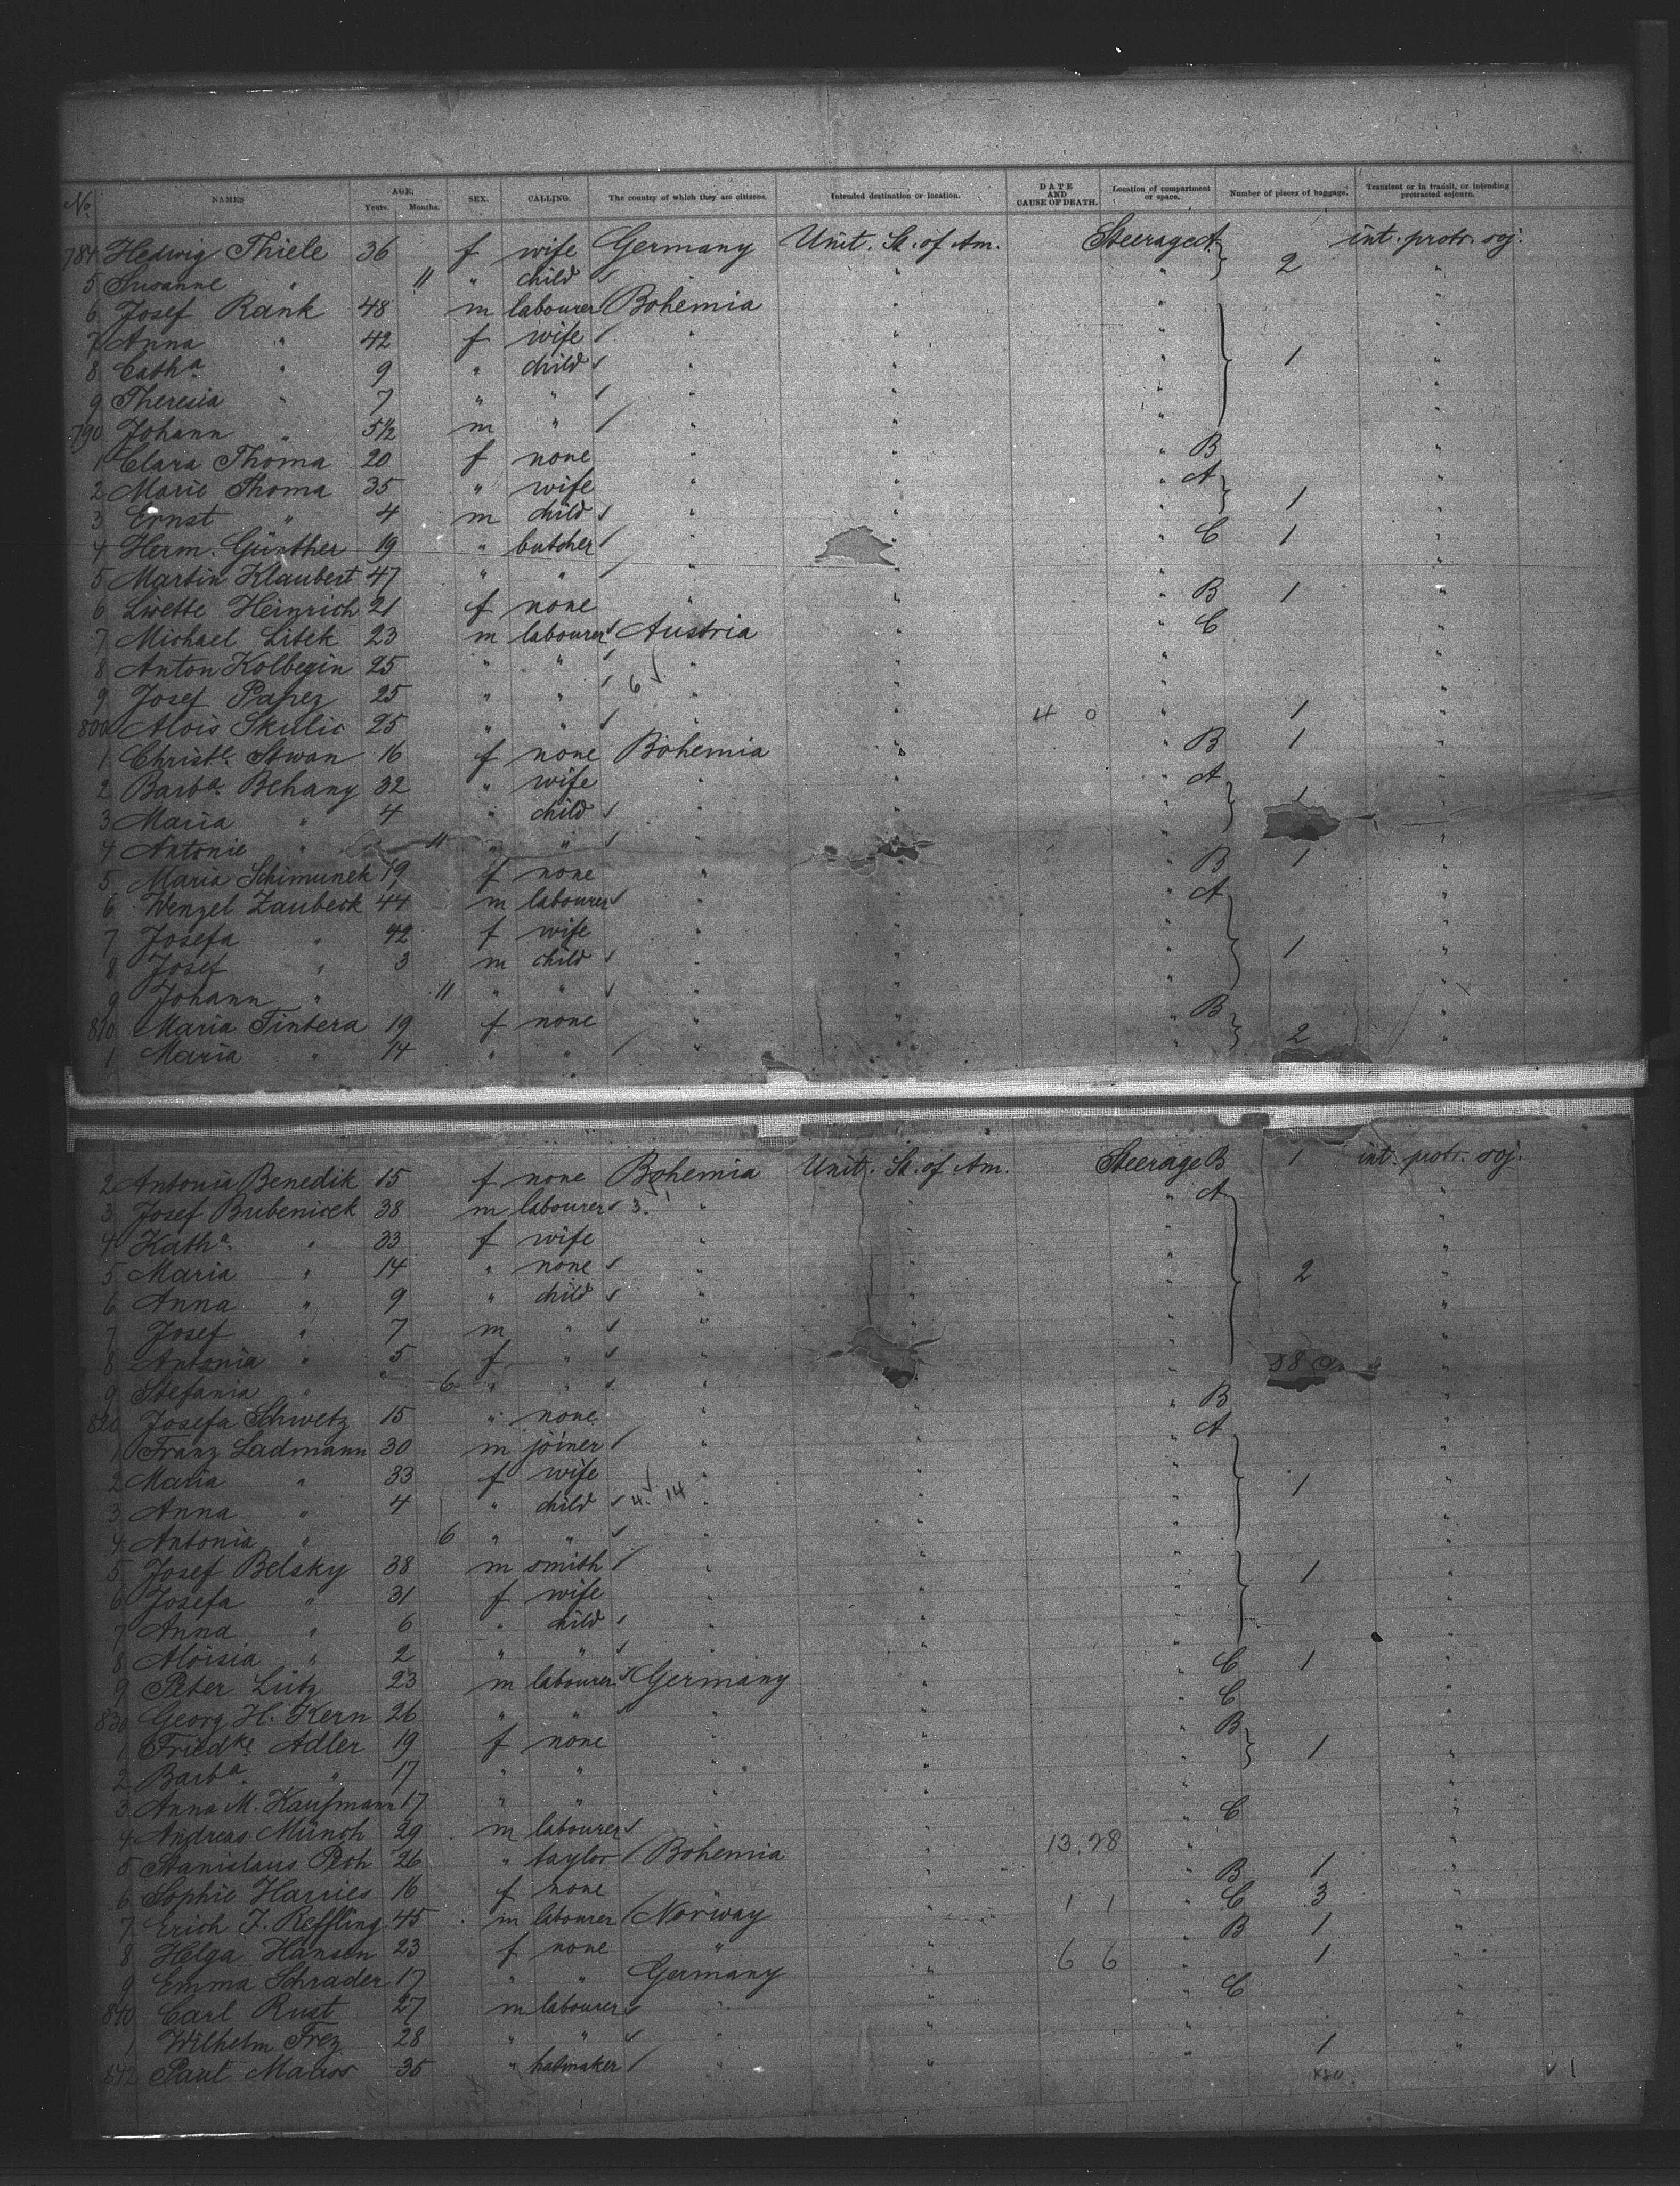 No. NAMES AGE. Years. Months. SEX. CALLING. The country of which they are citizens. Intended destination or location. DATE AND CAUSE OF DEATH. Location of compartment or space. Number of pieces of baggage. Transient or in transit, or intending protracted sojourn.
784 Hedwig Thiele 36 f wife Germany Unit. St. of Am. Steerage A 2 int. protr. soj.
5 Susanne " 11 " child " " " "
6 Josef Rank 48 m labourer Bohemia " " "
7 Anna " 42 f wife " " " "
8 Catha. " 9 " child " " " 1 "
9 Theresia " 7 " " " " " "
790 Johann " 5½ m " " " " "
1 Clara Thoma 20 f none " " " B "
2 Marie Thoma 35 " wife " " " A 1 "
3 Ernst " 4 m child " " " "
4 Herm. Günther 19 " butcher " " C 1 "
5 Martin Klaubert 47 " " " " " "
6 Lisette Heinrich 21 f none " " " B 1 "
7 Michael Litek 23 m labourer Austria " " C "
8 Anton Kolbegin 25 " " " " " "
9 Josef Papez 25 " " 6 " " " "
800 Alois Skulic 25 " " " " 4 0 " 1 "
1 Christe. Stwan 16 f none Bohemia " " B 1 "
2 Barba. Behany 32 " wife " " " A 1 "
3 Maria " 4 " child " " " "
4 Antonie " 11 " " " " " "
5 Maria Schimunek 19 f none " " " B 1 "
6 Wenzel Zaubeck 44 m labourer " " " A "
7 Josefa " 42 f wife " " " 1 "
8 Josef " 3 m child " " " "
9 Johann " 11 " " " " " "
810 Maria Tintera 19 f none " " " B 2 "
1 Maria " 14 " " " " " "
2 Antonia Benedik 15 f none Bohemia Unit. St. of Am. Steerage B 1 int. protr. soj.
3 Josef Bubenicek 38 m labourer 3. " " " A "
4 Katha. " 33 f wife " " " "
5 Maria " 14 " none " " " 2 "
6 Anna " 9 " child " " " "
7 Josef " 7 m " " " " "
8 Antonia " 5 f " " " " "
9 Stefania " 6 " " " " " "
820 Josefa Schwetz 15 " none " " " B "
1 Franz Ladmann 30 m joiner " " " A "
2 Maria " 33 f wife " " " 1 "
3 Anna " 4 " child 4. 14 " " " "
4 Antonia " 6 " " " " " "
5 Josef Belsky 38 m smith " " " 1 "
6 Josefa " 31 f wife " " " "
7 Anna " 6 " child " " " "
8 Aloisia " 2 " " " " " "
9 Peter Lütz 23 m labourer Germany " " C 1 "
830 Georg H. Kern 26 " " " " " C "
1 Friedke. Adler 19 f none " " " B 1 "
2 Barba. " 17 " " " " " "
3 Anna M. Kaufmann 17 " " " " " "
4 Andreas Münch 29 m labourer " " " C "
5 Stanislaus Pech 26 " taylor Bohemia " 13.28 " "
6 Sophie Harries 16 f none " " " B 1 "
7 Erich J. Reffling 45 m labourer Norway " 1 1 " C 3 "
8 Helga Hansen 23 f none " " " B 1 "
9 Emma Schrader 17 " " Germany " 6 6 " 1 "
840 Carl Rust 27 m labourer " " " C "
1 Wilhelm Frez 28 " " " " " "
842 Paul 35 " hatmaker " " " 1 "